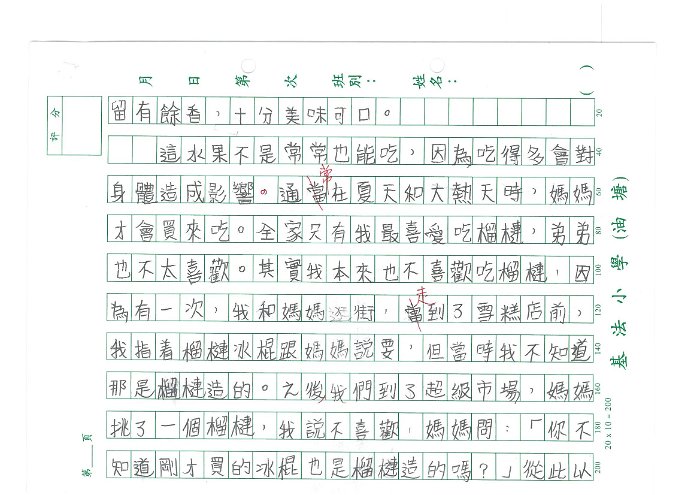 月 日 第 次 班別： 姓名： ( )
評分
留有餘香，十分美味可口。 20
這水果不是常常也能吃，因為吃得多會對 40
常
身體造成影響。通當在夏天和大熱天時，媽媽 60
才會買來吃。全家只有我最喜愛吃榴槤，弟弟 80
也不太喜歡。其實我本來也不喜歡吃榴槤，因 100
走
為有一次，我和媽媽逐街，當到了雪糕店前， 120
我指着榴槤冰棍跟媽媽說要，但當時我不知道 140
那是榴槤造的。之後我們到了超級市場，媽媽 160
挑了一個榴槤，我說不喜歡，媽媽問：「你不 180
知道剛才買的冰棍也是榴槤造的嗎？」從此以 200
第 頁
基法小學(油塘)
20 x 10 - 200